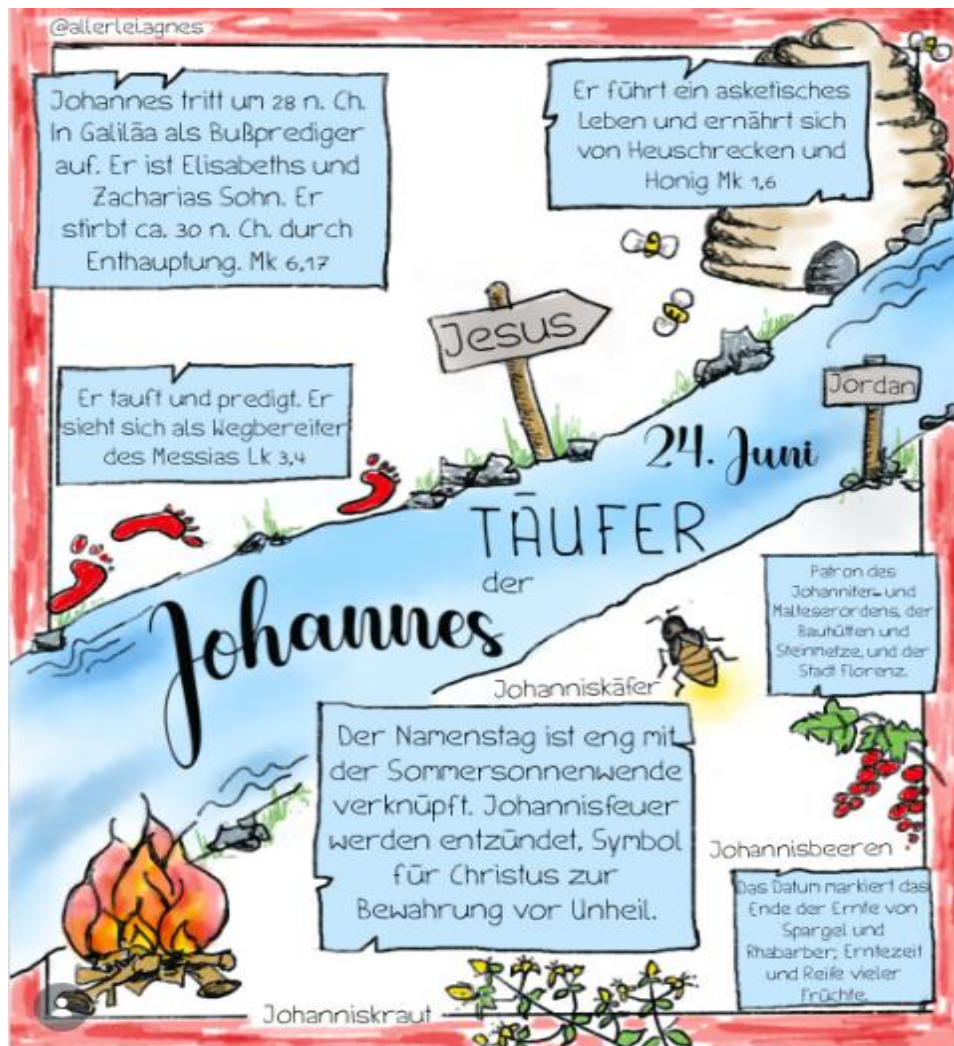 @allerleiagnes
Johannes tritt um 28 n. Ch.
In Galiläa als Bußprediger
auf. Er ist Elisabeths und
Zacharias Sohn. Er
stirbt ca. 30 n. Ch. durch
Enthauptung. Mk 6,17
Er führt ein asketisches
Leben und ernährt sich
von Heuschrecken und
Honig Mk 1,6
Jesus
Jordan
Er tauft und predigt. Er
sieht sich als Wegbereiter
des Messias Lk 3,4
24. Juni
Johannes
der
TÄUFER
Patron des
Johanniter- und
Malteserordens, der
Bauhütten und
Steinmetze, und der
Stadt Florenz.
Johanniskäfer
Der Namenstag ist eng mit
der Sommersonnenwende
verknüpft. Johannisfeuer
werden entzündet, Symbol
für Christus zur
Bewahrung vor Unheil.
Johannisbeeren
Das Datum markiert das
Ende der Ernte von
Spargel und
Rhabarber; Erntezeit
und Reife vieler
Früchte.
Johanniskraut